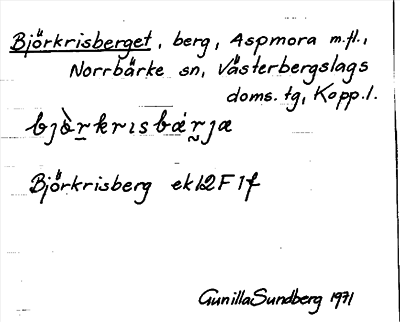 Björkrisberget, berg, Aspmora m.fl.,
Norrbärke sn, Västerbergslags
doms. tg, Kopp. l.
bjòr̲krısbár̰jæ
Björkrisberg ek 12 F 1f
Gunilla Sundberg 1971